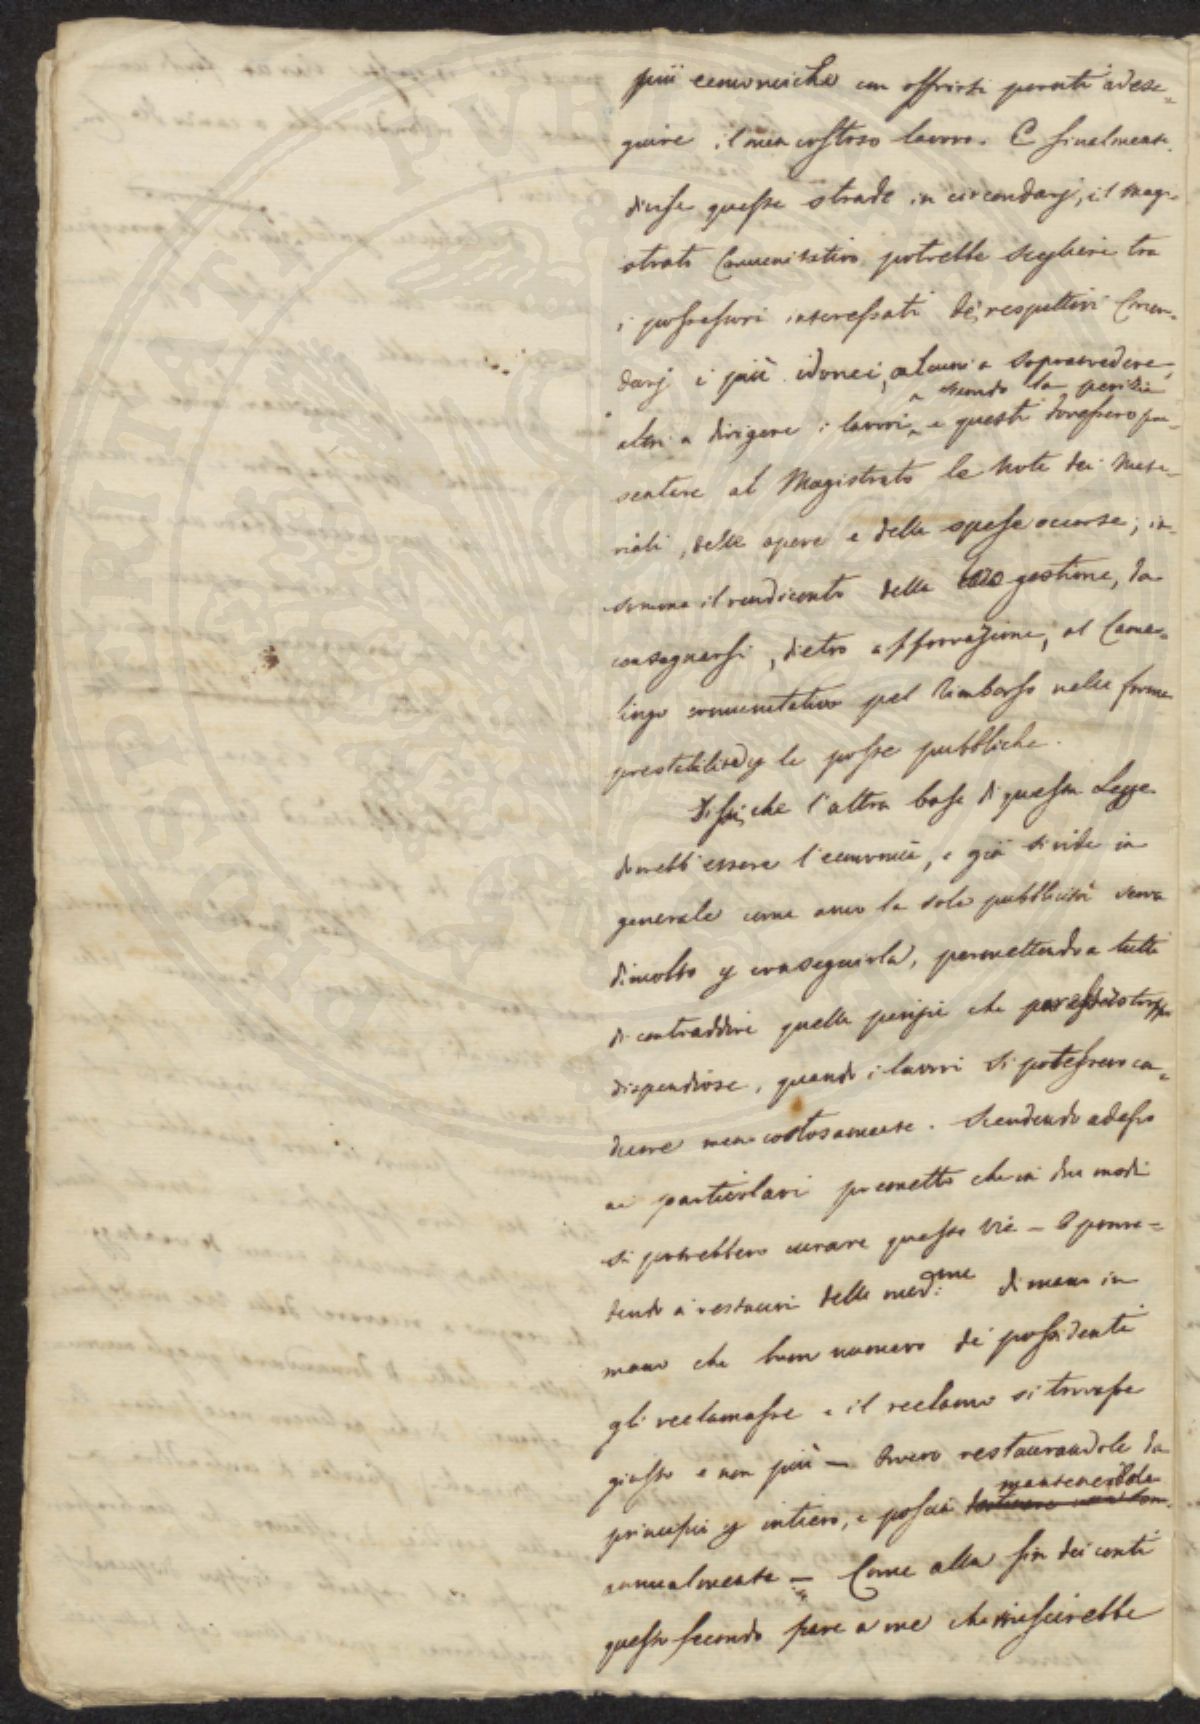 più economiche con offrirsi pronti ad ese-
guire il men costoso lavoro. E finalmente
divise queste strade in circondarj, il Magi-
strato Comunitativo potrebbe scegliere tra
i possessori interessati de' respettivi Circon-
darj i più idonei, alcuni a sopravvedere,
altri a dirigere i lavori secondo la perizia e questi dovessero pre-
sentare al Magistrato le Note dei Mate-
riali, delle opere e delle spese occorse; in-
somma il rendiconto della gestione, da
consegnarsi, dietro approvazione, al Camar-
lingo comunitativo pel rimborso nelle forme
prestabilite p le poste pubbliche.
Dissi, che l'altra base di questa Legge
dovrebb'essere l'economia, e già si vide in
generale come anco la sola pubblicità serva
di molto p conseguirla, permettendo a tutti
di contraddire quelle perizie che troppo
dispendiose, quando i lavori si potessero con-
durre meno costosamente. Scendendo adesso
ai particolari premetto che in due modi
si potrebbero curare queste vie — O provve-
dendo ai restauri delle med:me di mano in
mano che buon numero de' possidenti
gli reclamasse e il reclamo si trovasse
giusto e non più — Ovvero restaurandole da
principio p intiero, e poscia mantenendole
annualmente — Come alla fin dei conti
questo secondo pare a me che riuscirebbe